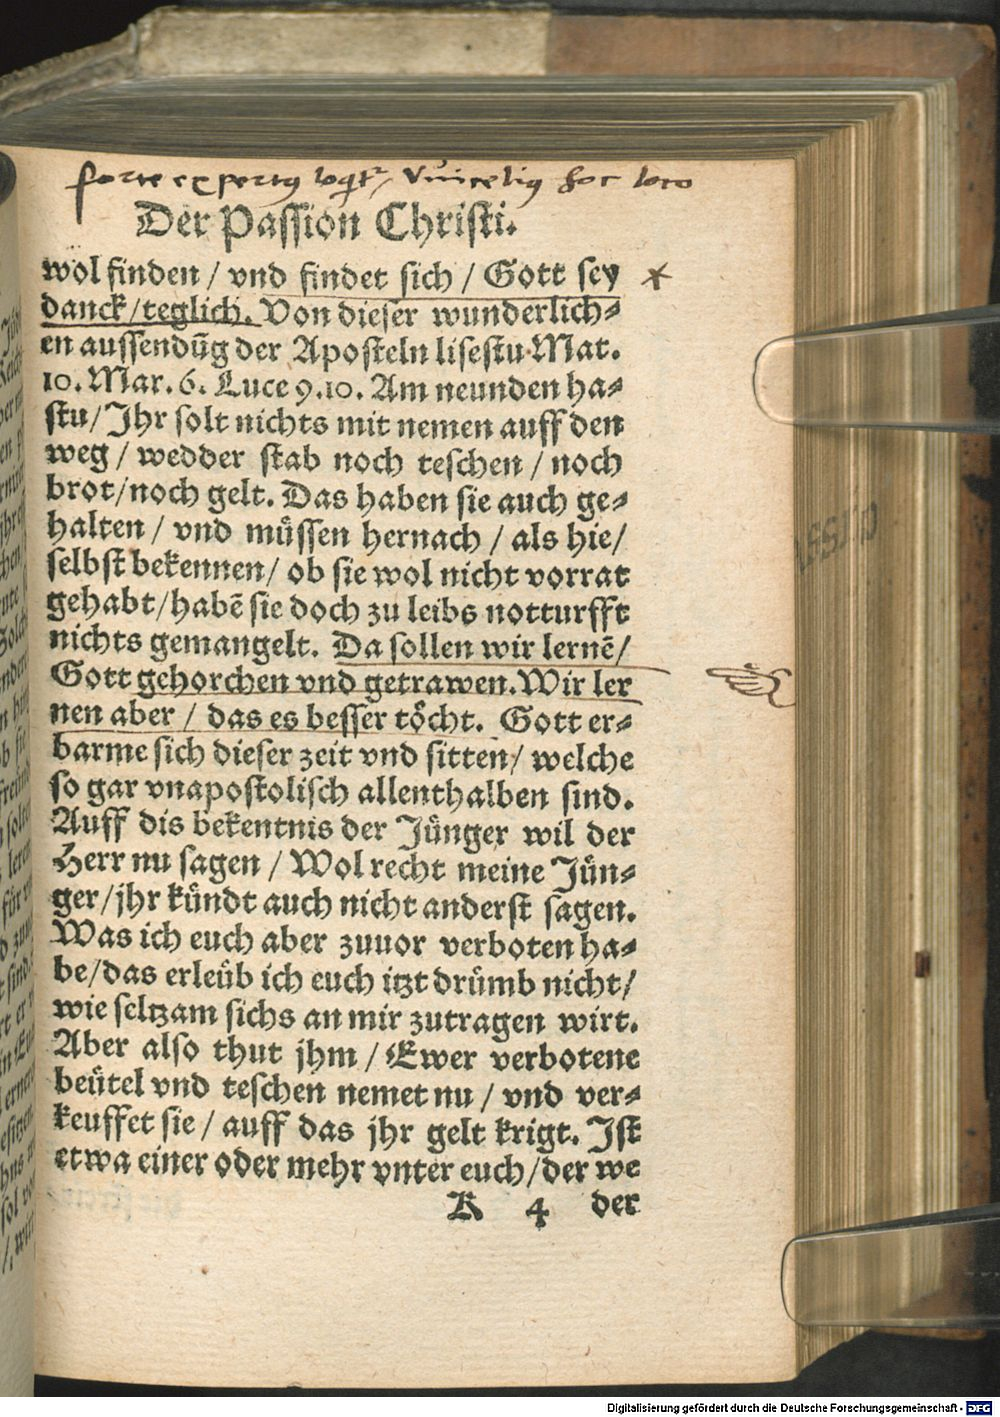 forte expertus loq̃tr Vuicelius hoc loco
Der Passion Christi.
wol finden / vnd findet sich / Gott sey *
danck/teglich. Von dieser wunderlich⸗
en aussendūg der Aposteln lisestu Mat.
10. Mar. 6. Luce 9.10. Am neunden ha⸗
stu/Jhr solt nichts mit nemen auff den
weg / wedder stab noch teschen / noch
brot/noch gelt. Das haben sie auch ge⸗
halten / vnd müssen hernach / als hie/
selbst bekennen/ ob sie wol nicht vorrat
gehabt/habē sie doch zu leibs notturfft
nichts gemangelt. Da sollen wir lernē/
Gott gehorchen vnd getrawen. Wir ler
nen aber / das es besser töcht. Gott er⸗
barme sich dieser zeit vnd sitten/ welche
so gar vnapostolisch allenthalben sind.
Auff dis bekentnis der Jünger wil der
Herr nu sagen / Wol recht meine Jün⸗
ger/jhr kündt auch nicht anderst sagen.
Was ich euch aber zuuor verboten ha⸗
be/das erleüb ich euch itzt drümb nicht/
wie seltzam sichs an mir zutragen wirt.
Aber also thut jhm / Ewer verbotene
beütel vnd teschen nemet nu / vnd ver⸗
keuffet sie / auff das jhr gelt krigt. Jst
etwa einer oder mehr vnter euch/der we
K 4 der
Digitalisierung gefördert durch die Deutsche Forschungsgemeinschaft - DFG